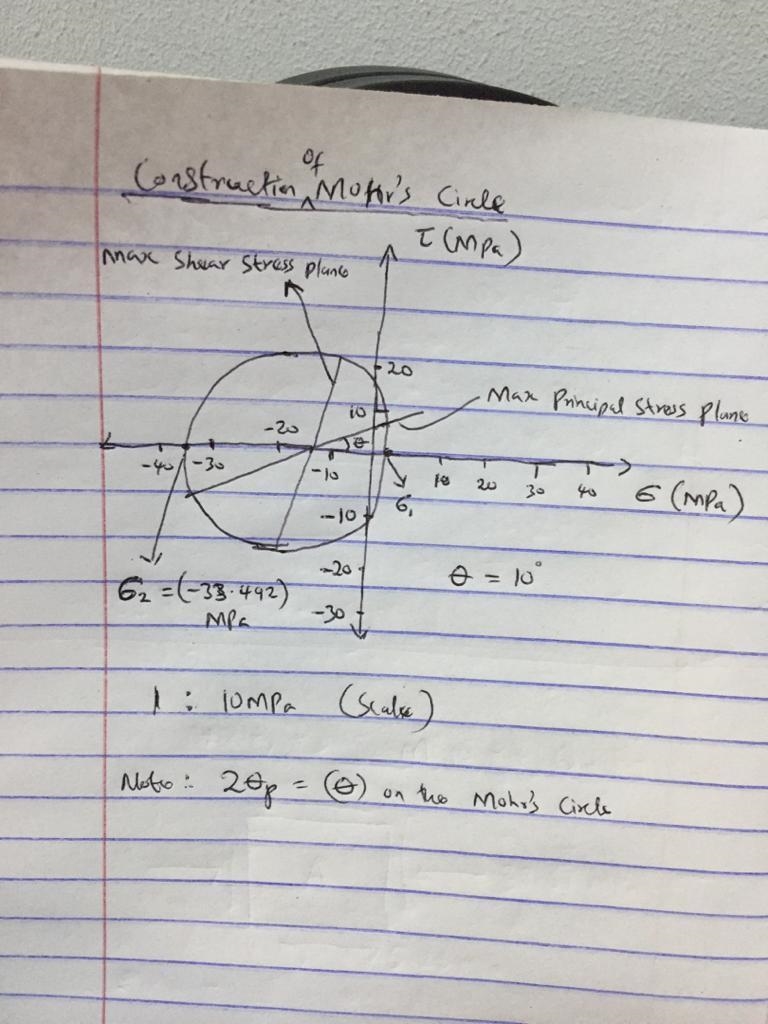 Construction of Mohr's Circle
τ (MPa)
Max Shear Stress Plane
20
Max Principal Stress Plane
10
θ
-40 -30 -20 -10 10 20 30 40 σ (MPa)
σ₁
-10
-20
θ = 10°
σ₂ = (-33.492)
MPa
-30
1 : 10MPa (Scale)
Note: 2θp = (θ) on the Mohr's Circle